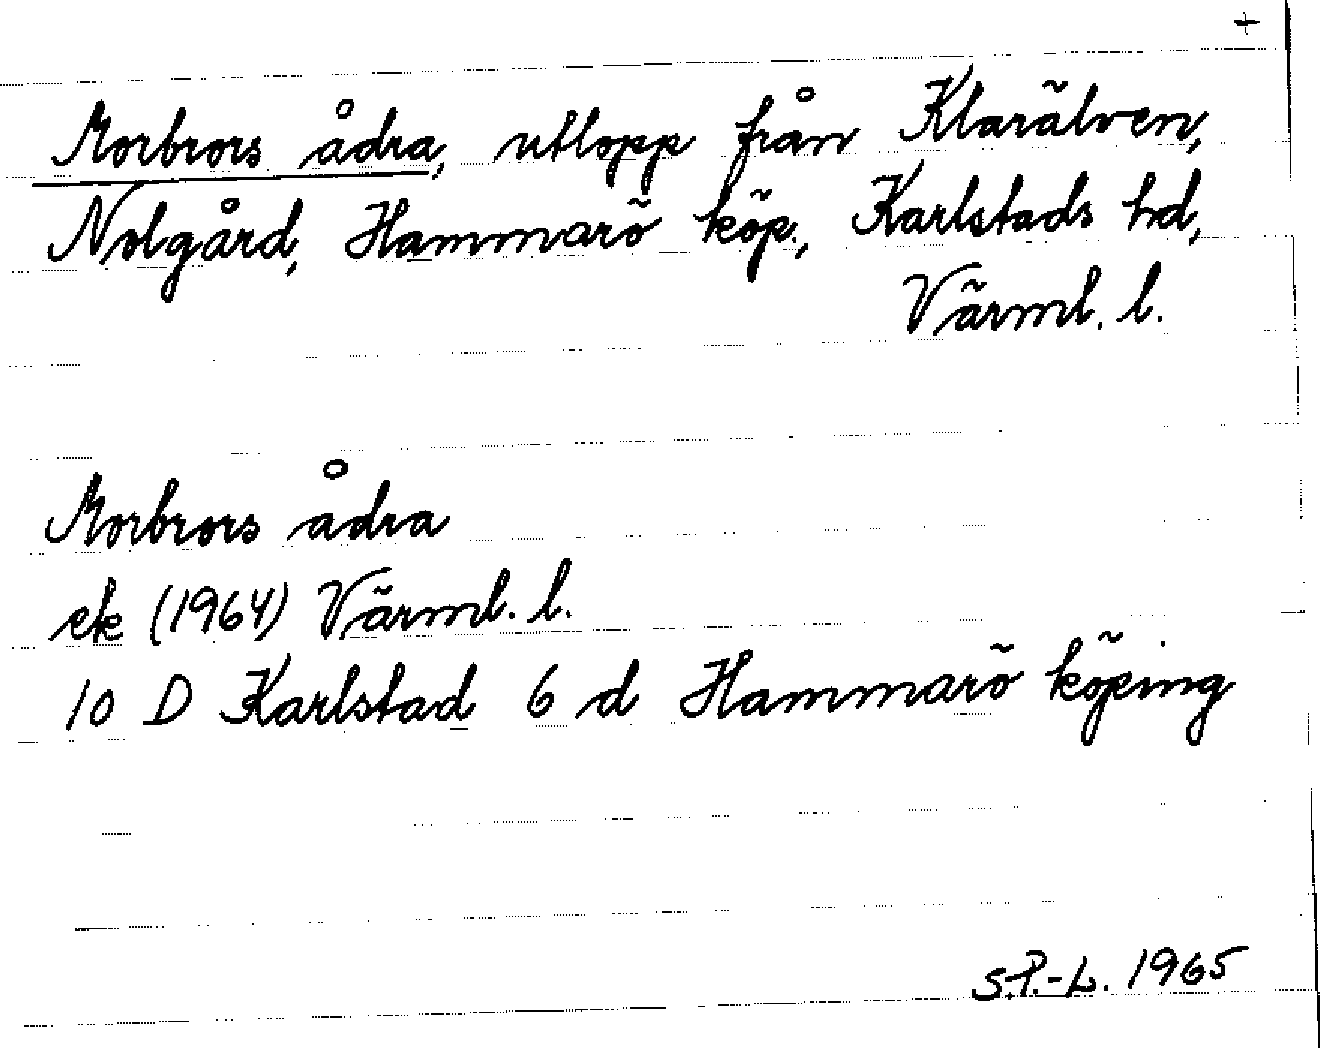 +
Morbrors ådra, utlopp från Klarälven,
Nolgård, Hammarö köp., Karlstads hd,
Värml. l.
Morbrors ådra
ek (1964) Värml. l.
10 D Karlstad 6 d Hammarö köping
S.P.-L. 1965